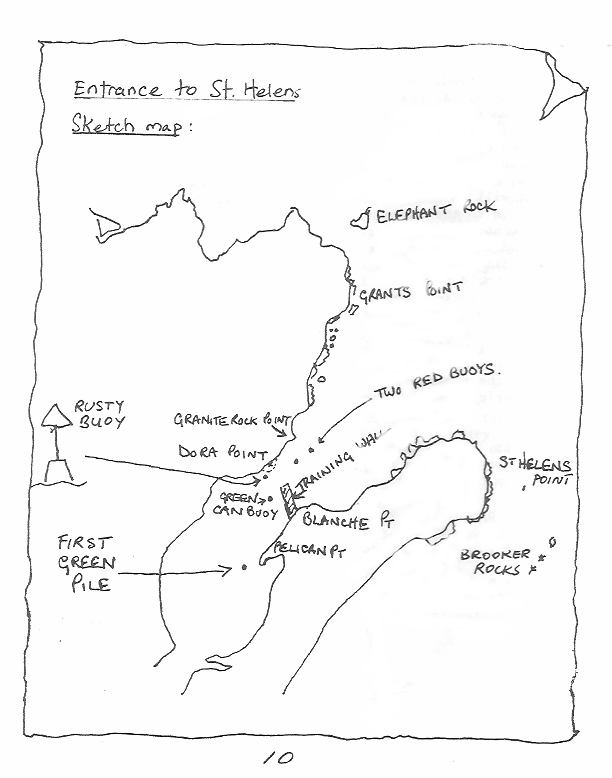 Entrance to St. Helens
Sketch map:
ELEPHANT ROCK
GRANTS POINT
TWO RED BUOYS.
RUSTY
BUOY
GRANITE ROCK POINT
DORA POINT
TRAINING WALL
ST HELENS
POINT
GREEN
CAN BUOY
BLANCHE PT
FIRST
GREEN
PILE
PELICAN PT
BROOKER
ROCKS
10